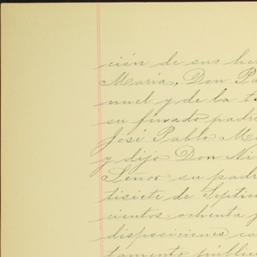 ción de sus he
María, Don Pa
nuel y de la t
su finado padre
José Pablo Ma
y dijo Don Ni
Señor su padr
tisiete de Septiem
cientos ochenta y
disposiciones ca
tamento públic